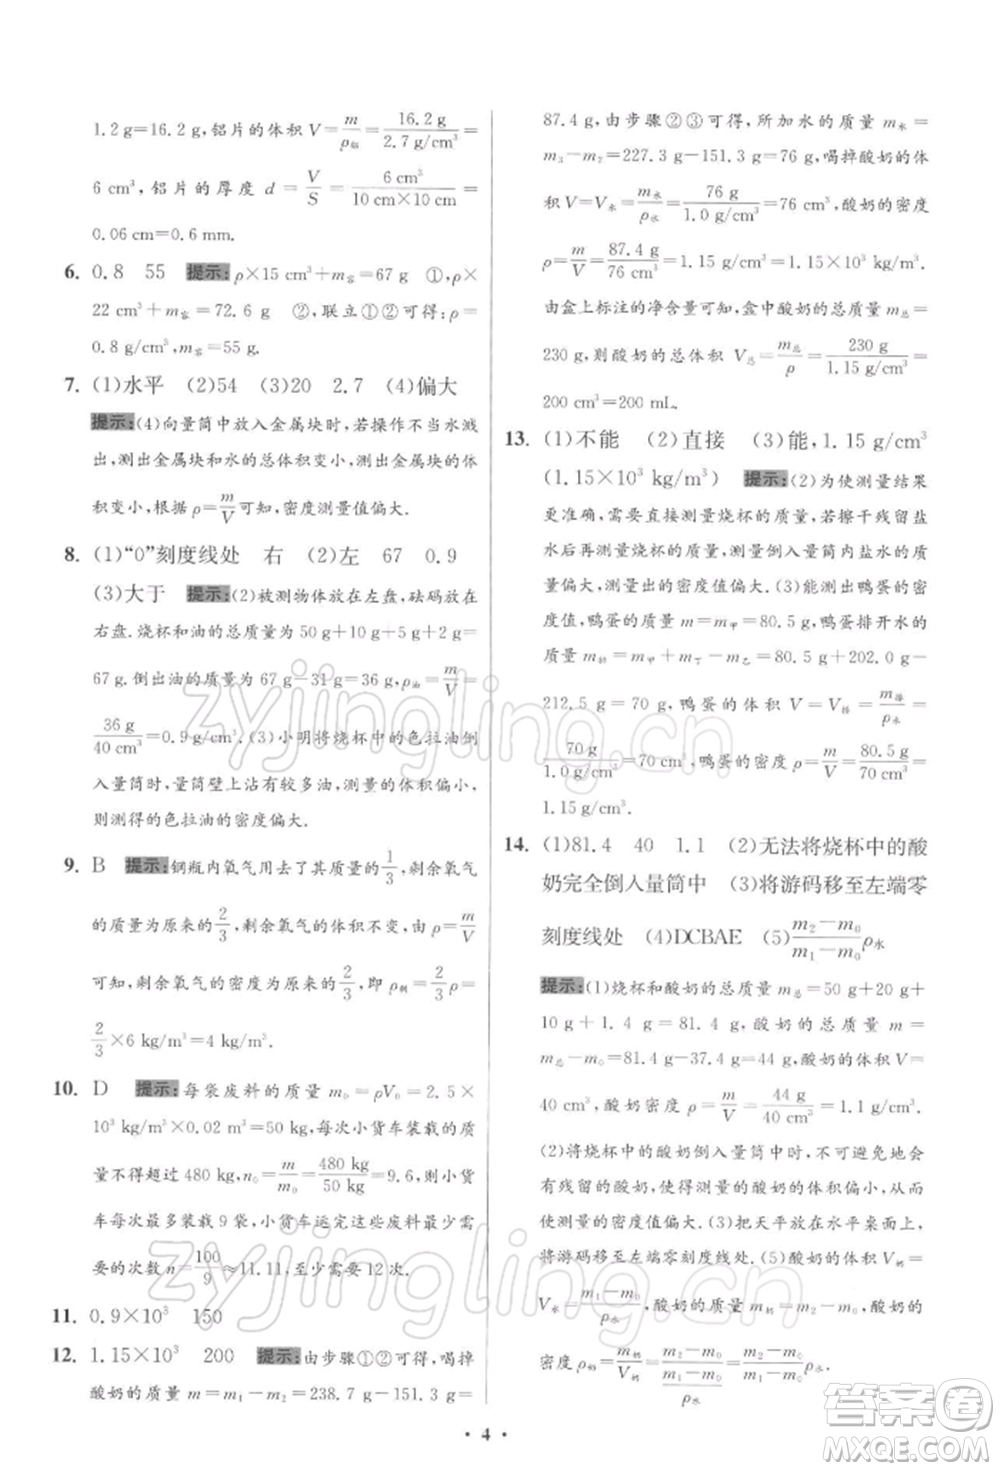 1.2 g=16.2 g,铝片的体积 V=m/ρ铝=16.2 g/2.7 g/cm³=
6 cm³,铝片的厚度 d=V/S=6 cm³/10 cm×10 cm=
0.06 cm=0.6 mm.
6. 0.8 55 提示:ρ×15 cm³+m容=67 g ①,ρ×
22 cm³+m容=72.6 g ②,联立①②可得:ρ=
0.8 g/cm³,m容=55 g.
7. (1)水平 (2)54 (3)20 2.7 (4)偏大
提示:(4)向量筒中放入金属块时,若操作不当水溅
出,测出金属块和水的总体积变小,测出金属块的体
积变小,根据ρ=m/V可知,密度测量值偏大.
8. (1)“0”刻度线处 右 (2)左 67 0.9
(3)大于 提示:(2)被测物体放在左盘,砝码放在
右盘.烧杯和油的总质量为 50 g+10 g+5 g+2 g=
67 g.倒出油的质量为 67 g-31 g=36 g,ρ油=m/V=
36 g/40 cm³=0.9 g/cm³.(3)小明将烧杯中的色拉油倒
入量筒时,量筒壁上沾有较多油,测量的体积偏小,
则测得的色拉油的密度偏大.
9. B 提示:钢瓶内氧气用去了其质量的1/3,剩余氧气
的质量为原来的2/3,剩余氧气的体积不变,由 ρ=m/V
可知,剩余氧气的密度为原来的2/3,即 ρ剩=2/3ρ=
2/3×6 kg/m³=4 kg/m³.
10. D 提示:每袋废料的质量 m₀=ρV₀=2.5×
10³ kg/m³×0.02 m³=50 kg,每次小货车装载的质
量不得超过 480 kg,n₀=m/m₀=480 kg/50 kg=9.6,则小货
车每次最多装载 9 袋,小货车运完这些废料最少需
要的次数 n=100/9≈11.11,至少需要 12 次.
11. 0.9×10³ 150
12. 1.15×10³ 200 提示:由步骤①②可得,喝掉
酸奶的质量 m=m₁-m₂=238.7 g-151.3 g=
87.4 g,由步骤②③可得,所加水的质量 m水=
m₃-m₂=227.3 g-151.3 g=76 g,喝掉酸奶的体
积 V=V水=m水/ρ水=76 g/1.0 g/cm³=76 cm³,酸奶的密度
ρ=m/V=87.4 g/76 cm³=1.15 g/cm³=1.15×10³ kg/m³.
由盒上标注的净含量可知,盒中酸奶的总质量 m总=
230 g,则酸奶的总体积 V总=m总/ρ=230 g/1.15 g/cm³=
200 cm³=200 mL.
13. (1)不能 (2)直接 (3)能,1.15 g/cm³
(1.15×10³ kg/m³) 提示:(2)为使测量结果
更准确,需要直接测量烧杯的质量,若擦干残留盐
水后再测量烧杯的质量,会导致量筒内盐水的质
量偏大,测量出的密度值偏大.(3)能测量出鸭蛋的
密度值,鸭蛋的质量 m=m甲=80.5 g,鸭蛋排开水的
质量 m排=m甲+m丁-m乙=80.5 g+202.0 g-
212.5 g=70 g,鸭蛋的体积 V=V排=m排/ρ水=
70 g/1.0 g/cm³=70 cm³,鸭蛋的密度 ρ=m/V=80.5 g/70 cm³=
1.15 g/cm³.
14. (1)81.4 40 1.1 (2)无法将烧杯中的酸
奶完全倒入量筒中 (3)将游码移至左端零
刻度线处 (4)DCBAE (5)m₂-m₀/m₁-m₀ρ水
提示:(1)烧杯和酸奶的总质量 m总=50 g+20 g+
10 g+1.4 g=81.4 g,酸奶的总质量 m=
m总-m₀=81.4 g-37.4 g=44 g,酸奶的体积 V=
40 cm³,酸奶密度 ρ=m/V=44 g/40 cm³=1.1 g/cm³.
(2)将烧杯中的酸奶倒入量筒中时,不可避免地会
有残留的酸奶,使得测量的酸奶的体积偏小,从而
使测量的密度值偏大.(3)把天平放在水平桌面后,
将游码移至左端零刻度线处.(5)酸奶的体积 V奶=
V水=m₁-m₀/ρ水,酸奶的质量 m奶=m₂-m₀,酸奶的
密度 ρ奶=m奶/V奶=m₂-m₀/m₁-m₀/ρ水=m₂-m₀/m₁-m₀ρ水.
• 4 •
zyjingling.cn
zyjingling.cn
答案圈
MXQE.COM